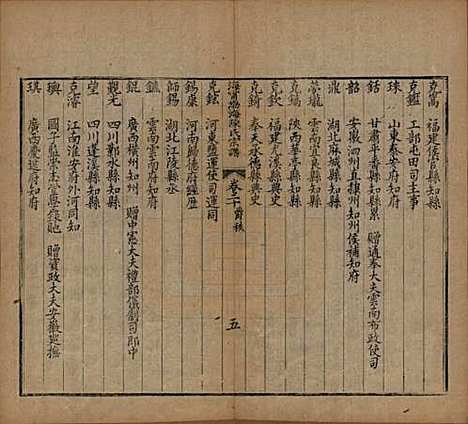 克嵩　福建侯官縣知縣
克鑑　工部屯田司主事
珠　山東泰安府知府
銛　甘肅平番縣知縣累　贈通奉大夫雲南布政使司
韶　安徽泗州直隸州知州侯補知府
鼎　湖北麻城縣知縣
夢瓏　陝西華亭縣知縣
克鎬　福建光澤縣典史
克欽　奉天承德縣典史
克錡
海甯渤海陳氏宗譜　卷二十 爵秩　五
克鉉　河東鹽運使司運同
錫康　河南懷慶府經歷
師錫　湖北江陵縣丞
鑣　雲南雲南府知府
錕　廣西橫州知州　贈中憲大夫禮部儀制司郎中
觀光　四川鄰水縣知縣
望　四川蓬溪縣知縣
克濬　江南淮安府外河同知
璵　國子監學正學錄　贈資政大夫安徽巡撫
琪　廣西慶遠府知府